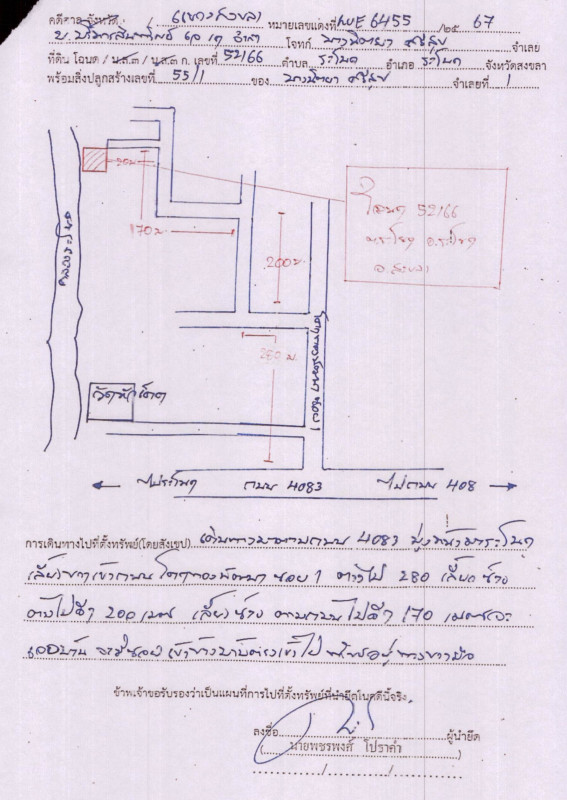 คดีศาล จังหวัด (สงขลา) หมายเลขแดงที่ ผบE 6455 /๒๕ 67
บ.บริหารสินทรัพย์ เจ เค จำกัด โจทก์ นางนิตยา ศรีสุข จำเลย
ที่ดิน โฉนด / น.ส.๓ / น.ส.๓ ก. เลขที่ 52166 ตำบล ระโนด อำเภอ ระโนด จังหวัดสงขลา
พร้อมสิ่งปลูกสร้างเลขที่ 55/1 ของ นางนิตยา ศรีสุข จำเลยที่ 1
20ม.
โฉนด 52166
ต.ระโนด อ.ระโนด
จ.สงขลา
170 ม.
คลองระโนด
200 ม.
280 ม.
ซอย 1
ไประโนด ถนน 4083 ไปถนน 408
การเดินทางไปที่ตั้งทรัพย์(โดยสังเขป) เดินทางมาตามถนน 4083 มุ่งหน้ามาระโนด
เลี้ยวขวาเข้าถนน ซอย 1 ตรงไป 280 เลี้ยวซ้าย
ตรงไปอีก 200 เมตร เลี้ยวซ้าย ตามถนนไปอีก 170 เมตร
ข้าพเจ้าขอรับรองว่าเป็นแผนที่การไปที่ตั้งทรัพย์ที่นำยึดในคดีนี้จริง
ลงชื่อ ผู้นำยึด
( นายพชรพงศ์ โปราคำ )